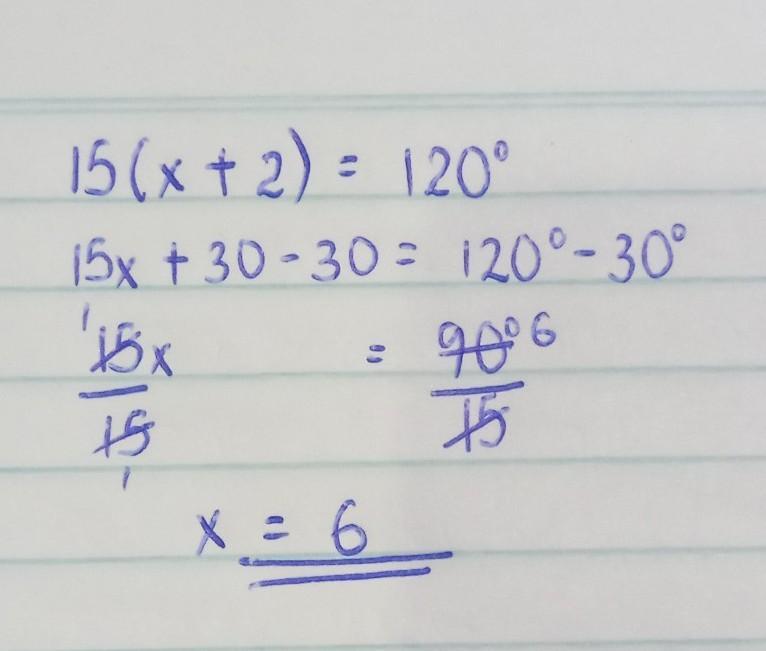 15(x + 2) = 120°
15x + 30 - 30 = 120° - 30°
1
15x = 90° 6
15 15
1
x = 6